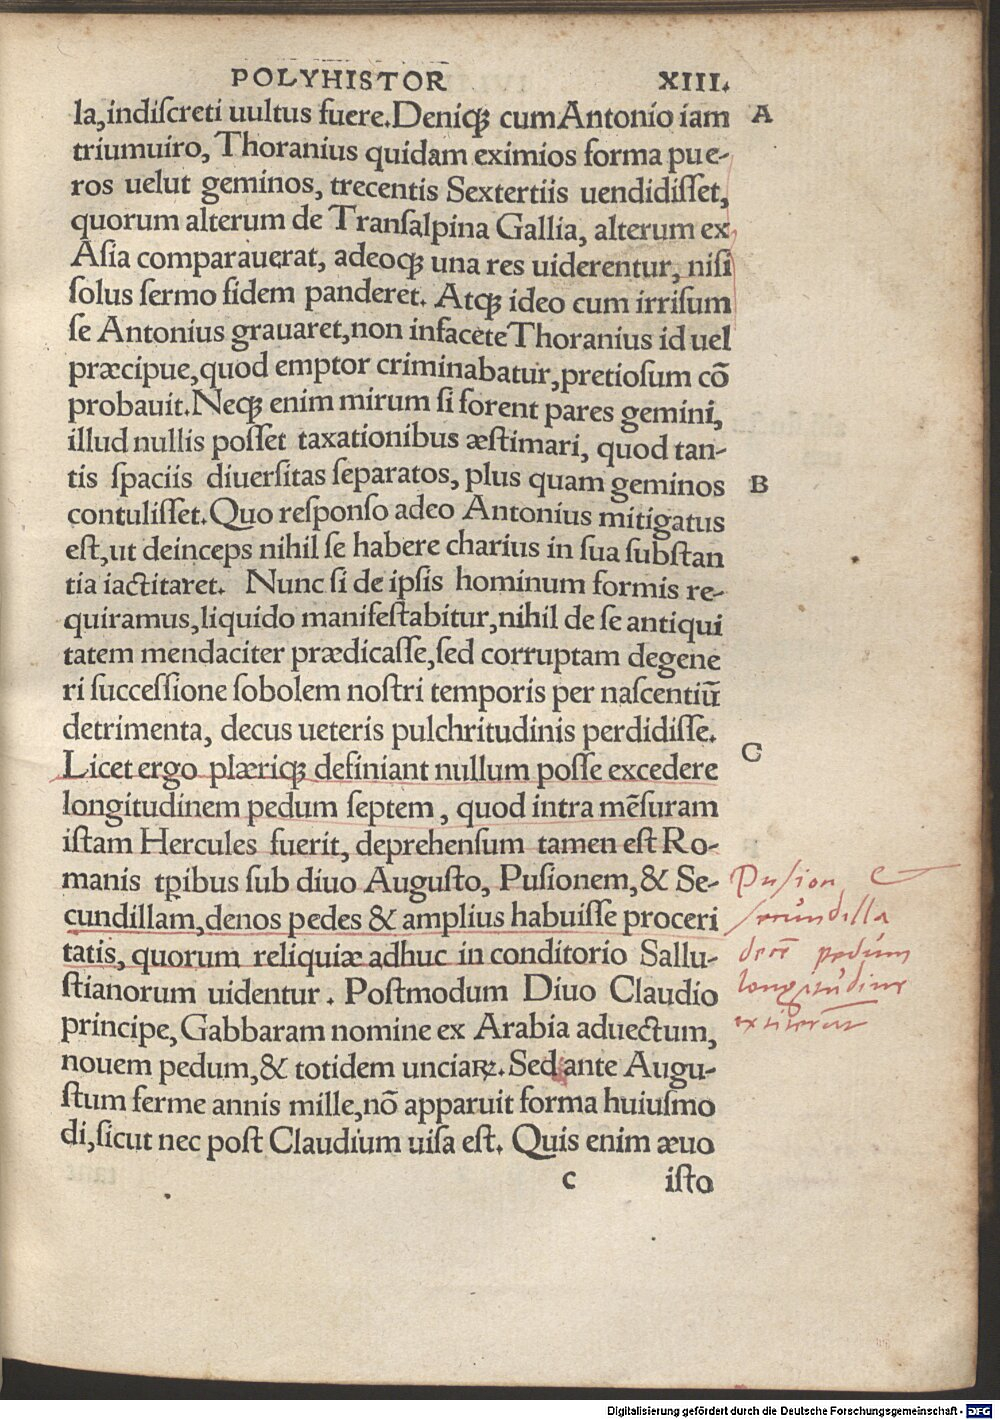 POLYHISTOR XIII.
la,indiſcreti uultus fuere.Deniqꝫ cum Antonio iam A
triumuiro, Thoranius quidam eximios forma pue-
ros uelut geminos, trecentis Sextertiis uendidiſſet,
quorum alterum de Tranſalpina Gallia, alterum ex
Aſia comparauerat, adeoqꝫ una res uiderentur, niſi
ſolus ſermo fidem panderet. Atqꝫ ideo cum irriſum
ſe Antonius grauaret,non infacete Thoranius id uel
præcipue,quod emptor criminabatur,pretioſum cō
probauit.Neqꝫ enim mirum ſi forent pares gemini,
illud nullis poſſet taxationibus æſtimari, quod tan-
tis ſpaciis diuerſitas ſeparatos, plus quam geminos B
contuliſſet.Quo reſponſo adeo Antonius mitigatus
eſt,ut deinceps nihil ſe habere charius in ſua ſubſtan
tia iactitaret. Nunc ſi de ipſis hominum formis re-
quiramus,liquido manifeſtabitur,nihil de ſe antiqui
tatem mendaciter prædicaſſe,ſed corruptam degene
ri ſucceſſione ſobolem noſtri temporis per naſcentiū
detrimenta, decus ueteris pulchritudinis perdidiſſe.
Licet ergo plæriqꝫ definiant nullum poſſe excedere C
longitudinem pedum ſeptem, quod intra mēſuram
iſtam Hercules fuerit, deprehenſum tamen eſt Ro-
manis tpibus ſub diuo Auguſto, Puſionem,& Se-
cundillam,denos pedes & amplius habuiſſe proceri
tatis, quorum reliquiæ adhuc in conditorio Sallu-
ſtianorum uidentur. Poſtmodum Diuo Claudio
principe,Gabbaram nomine ex Arabia aduectum,
nouem pedum,& totidem unciaꝝ. Sed ante Augu-
ſtum ferme annis mille,nō apparuit forma huiuſmo
di,ſicut nec poſt Claudium uiſa eſt. Quis enim æuo
c iſto
Pusion et
secundilla
decē pedum
longitudine
extiterūt
Digitalisierung gefördert durch die Deutsche Forschungsgemeinschaft - DFG